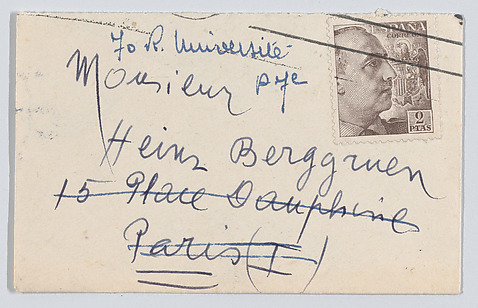 70 R. Université
Monsieur
p7e
Heinz Berggruen
15 Place Dauphine
Paris (I)
ESPAÑA
CORREOS
2
PTAS